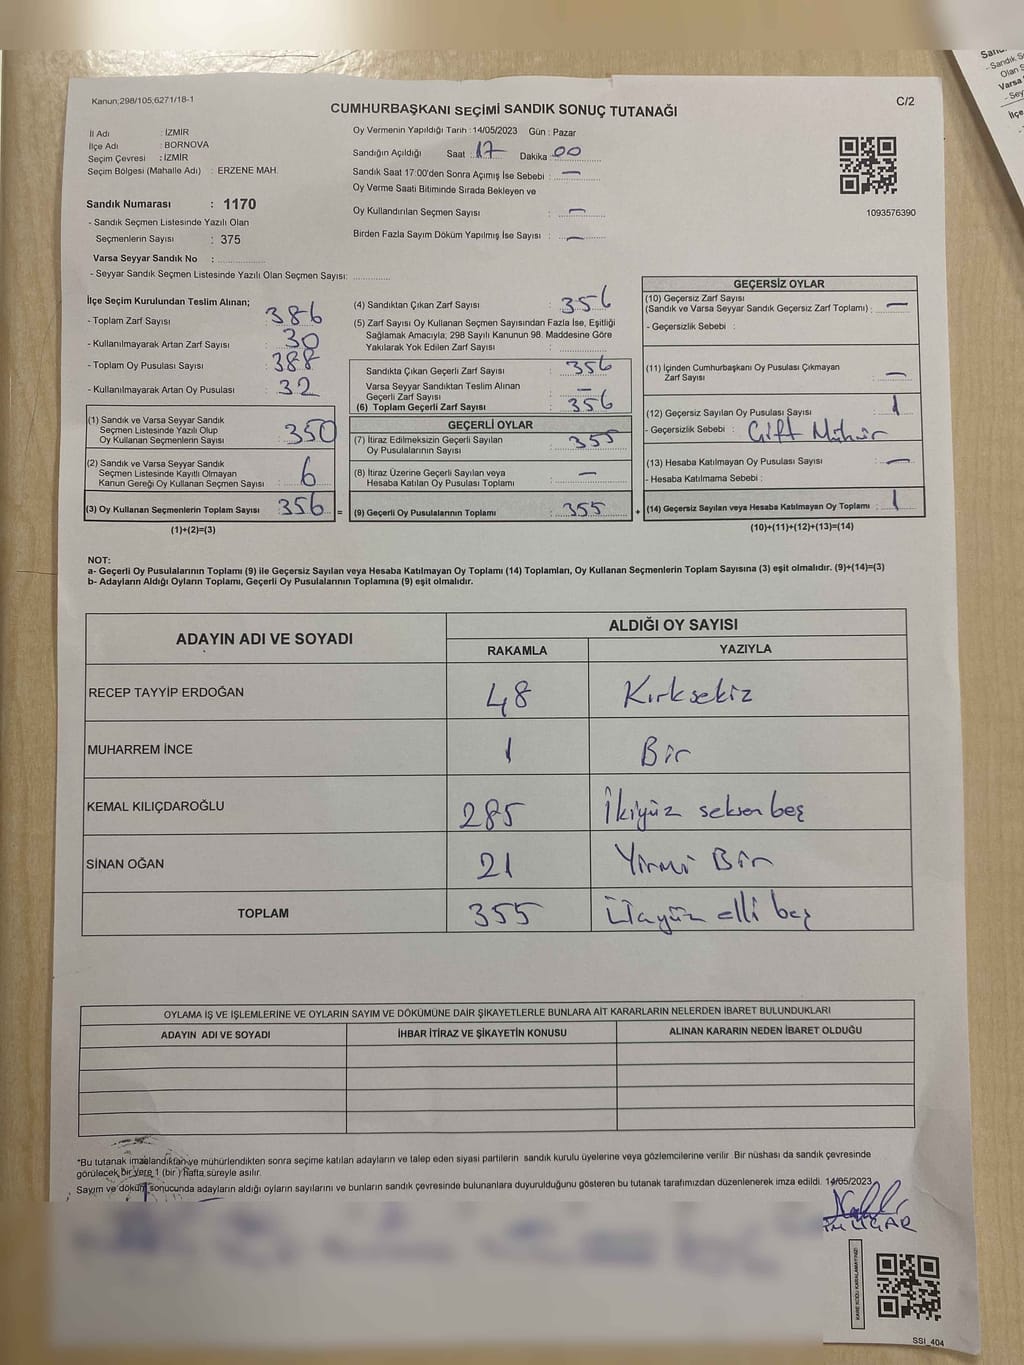 Kanun;298/105,6271/18-1
CUMHURBAŞKANI SEÇİMİ SANDIK SONUÇ TUTANAĞI
C/2
İl Adı : İZMİR
İlçe Adı : BORNOVA
Seçim Çevresi : İZMİR
Seçim Bölgesi (Mahalle Adı) : ERZENE MAH.
Sandık Numarası : 1170
- Sandık Seçmen Listesinde Yazılı Olan
Seçmenlerin Sayısı : 375
Varsa Seyyar Sandık No :
- Seyyar Sandık Seçmen Listesinde Yazılı Olan Seçmen Sayısı:
Oy Vermenin Yapıldığı Tarih : 14/05/2023 Gün : Pazar
Sandığın Açıldığı Saat : 17 Dakika : 00
Sandık Saat 17:00'den Sonra Açımış İse Sebebi : —
Oy Verme Saati Bitiminde Sırada Bekleyen ve
Oy Kullandırılan Seçmen Sayısı : —
Birden Fazla Sayım Döküm Yapılmış İse Sayısı : —
1093576390
İlçe Seçim Kurulundan Teslim Alınan;
- Toplam Zarf Sayısı : 386
- Kullanılmayarak Artan Zarf Sayısı : 30
- Toplam Oy Pusulası Sayısı : 388
- Kullanılmayarak Artan Oy Pusulası : 32
(1) Sandık ve Varsa Seyyar Sandık
Seçmen Listesinde Yazılı Olup
Oy Kullanan Seçmenlerin Sayısı : 350
(2) Sandık ve Varsa Seyyar Sandık
Seçmen Listesinde Kayıtlı Olmayan
Kanun Gereği Oy Kullanan Seçmen Sayısı : 6
(3) Oy Kullanan Seçmenlerin Toplam Sayısı : 356
(1)+(2)=(3)
(4) Sandıktan Çıkan Zarf Sayısı : 356
(5) Zarf Sayısı Oy Kullanan Seçmen Sayısından Fazla İse, Eşitliği
Sağlamak Amacıyla; 298 Sayılı Kanunun 98. Maddesine Göre
Yakılarak Yok Edilen Zarf Sayısı :
Sandıkta Çıkan Geçerli Zarf Sayısı : 356
Varsa Seyyar Sandıktan Teslim Alınan
Geçerli Zarf Sayısı : —
(6) Toplam Geçerli Zarf Sayısı : 356
GEÇERLİ OYLAR
(7) İtiraz Edilmeksizin Geçerli Sayılan
Oy Pusulalarının Sayısı : 355
(8) İtiraz Üzerine Geçerli Sayılan veya
Hesaba Katılan Oy Pusulası Toplamı : —
=
(9) Geçerli Oy Pusulalarının Toplamı : 355
+
GEÇERSİZ OYLAR
(10) Geçersiz Zarf Sayısı
(Sandık ve Varsa Seyyar Sandık Geçersiz Zarf Toplamı) : —
- Geçersizlik Sebebi :
(11) İçinden Cumhurbaşkanı Oy Pusulası Çıkmayan
Zarf Sayısı : —
(12) Geçersiz Sayılan Oy Pusulası Sayısı : 1
- Geçersizlik Sebebi : Çift Mühür
(13) Hesaba Katılmayan Oy Pusulası Sayısı : —
- Hesaba Katılmama Sebebi :
(14) Geçersiz Sayılan veya Hesaba Katılmayan Oy Toplamı : 1
(10)+(11)+(12)+(13)=(14)
NOT:
a- Geçerli Oy Pusulalarının Toplamı (9) ile Geçersiz Sayılan veya Hesaba Katılmayan Oy Toplamı (14) Toplamları, Oy Kullanan Seçmenlerin Toplam Sayısına (3) eşit olmalıdır. (9)+(14)=(3)
b- Adayların Aldığı Oyların Toplamı, Geçerli Oy Pusulalarının Toplamına (9) eşit olmalıdır.
ADAYIN ADI VE SOYADI ALDIĞI OY SAYISI
RAKAMLA YAZIYLA
RECEP TAYYİP ERDOĞAN 48 Kırksekiz
MUHARREM İNCE 1 Bir
KEMAL KILIÇDAROĞLU 285 İkiyüz seksen beş
SİNAN OĞAN 21 Yirmi Bir
TOPLAM 355 Üçyüz elli beş
OYLAMA İŞ VE İŞLEMLERİNE VE OYLARIN SAYIM VE DÖKÜMÜNE DAİR ŞİKAYETLERLE BUNLARA AİT KARARLARIN NELERDEN İBARET BULUNDUKLARI
ADAYIN ADI VE SOYADI İHBAR İTİRAZ VE ŞİKAYETİN KONUSU ALINAN KARARIN NEDEN İBARET OLDUĞU
*Bu tutanak imzalandıktan ve mühürlendikten sonra seçime katılan adayların ve talep eden siyasi partilerin sandık kurulu üyelerine veya gözlemcilerine verilir. Bir nüshası da sandık çevresinde
görülecek bir yere 1 (bir) hafta süreyle asılır.
Sayım ve döküm sonucunda adayların aldığı oyların sayılarını ve bunların sandık çevresinde bulunanlara duyurulduğunu gösteren bu tutanak tarafımızdan düzenlenerek imza edildi. 14/05/2023
SSI_404